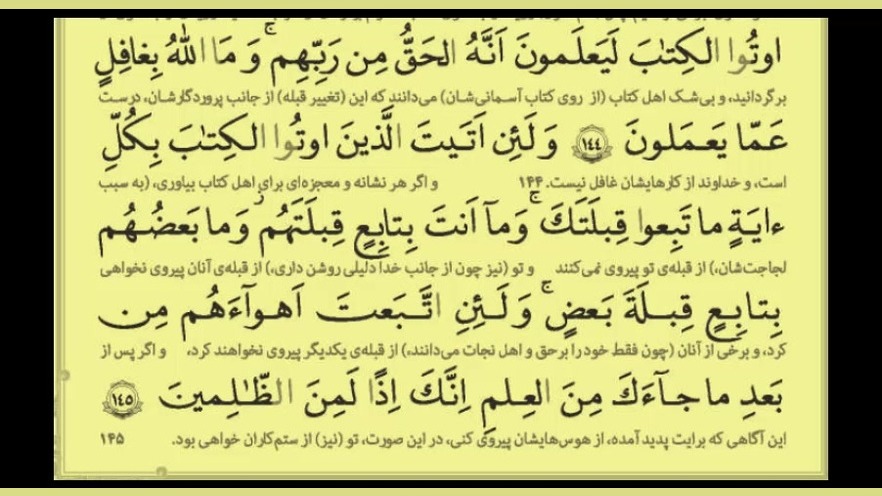 اوتُوا الکِتٰبَ لَیَعلَمونَ اَنَّهُ الحَقُّ مِن رَبِّهِم ۚ وَ مَا اللّٰهُ بِغافِلٍ
برگردانید، و بی‌شک اهل کتاب (از روی کتاب آسمانی‌شان) می‌دانند که این (تغییر قبله) از جانب پروردگارشان، درست
عَمّا یَعمَلونَ ﴿۱٤٤﴾ وَ لَئِن اَتَیتَ الَّذینَ اوتُوا الکِتٰبَ بِکُلِّ
است، و خداوند از کارهایشان غافل نیست. ۱۴۴ و اگر هر نشانه و معجزه‌ای برای اهل کتاب بیاوری، (به سبب
ءایَةٍ ما تَبِعوا قِبلَتَکَ ۚ وَ مآ اَنتَ بِتابِعٍ قِبلَتَهُم ۚ وَ ما بَعضُهُم
لجاجت‌شان،) از قبله‌ی تو پیروی نمی‌کنند و تو (نیز چون از جانب خدا دلیلی روشن داری،) از قبله‌ی آنان پیروی نخواهی
بِتابِعٍ قِبلَةَ بَعضٍ ۚ وَ لَئِنِ اتَّبَعتَ اَهوآءَهُم مِن
کرد، و برخی از آنان (چون فقط خود را برحق و اهل نجات می‌دانند،) از قبله‌ی یکدیگر پیروی نخواهند کرد، و اگر پس از
بَعدِ ما جآءَکَ مِنَ العِلمِ اِنَّکَ اِذًا لَمِنَ الظّٰلِمینَ ﴿۱٤٥﴾
این آگاهی که برایت پدید آمده، از هوس‌هایشان پیروی کنی، در این صورت، تو (نیز) از ستم‌کاران خواهی بود. ۱۴۵